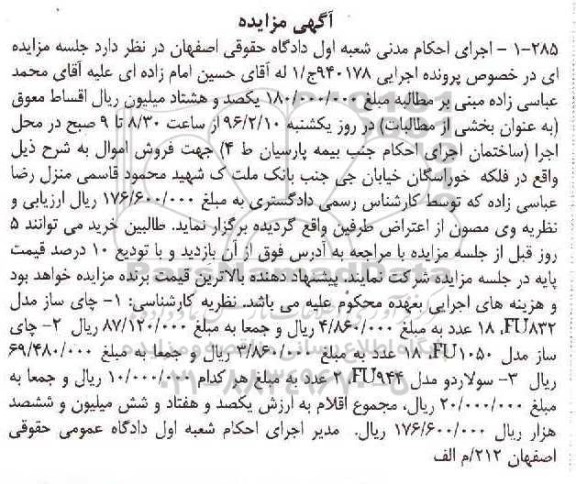 آگهی مزایده
۱-۲۸۵ - اجرای احکام مدنی شعبه اول دادگاه حقوقی اصفهان در نظر دارد جلسه مزایده
ای در خصوص پرونده اجرایی ۹۴۰۱۷۸ج/۱ له آقای حسین امام زاده ای علیه آقای محمد
عباسی زاده مبنی بر مطالبه مبلغ ۱۸۰/۰۰۰/۰۰۰ یکصد و هشتاد میلیون ریال اقساط معوق
(به عنوان بخشی از مطالبات) در روز یکشنبه ۹۶/۲/۱۰ از ساعت ۸/۳۰ تا ۹ صبح در محل
اجرا (ساختمان اجرای احکام جنب بیمه پارسیان ط ۴) جهت فروش اموال به شرح ذیل
واقع در فلکه خوراسگان خیابان جی جنب بانک ملت ک شهید محمود قاسمی منزل رضا
عباسی زاده که توسط کارشناس رسمی دادگستری به مبلغ ۱۷۶/۶۰۰/۰۰۰ ریال ارزیابی و
نظریه وی مصون از اعتراض طرفین واقع گردیده برگزار نماید. طالبین خرید می توانند ۵
روز قبل از جلسه مزایده با مراجعه به آدرس فوق از آن بازدید و با تودیع ۱۰ درصد قیمت
پایه در جلسه مزایده شرکت نمایند. پیشنهاد دهنده بالاترین قیمت برنده مزایده خواهد بود
و هزینه های اجرایی بعهده محکوم علیه می باشد. نظریه کارشناسی: ۱- چای ساز مدل
FU۸۳۲، ۱۸ عدد به مبلغ ۴/۸۶۰/۰۰۰ ریال و جمعا به مبلغ ۸۷/۱۲۰/۰۰۰ ریال ۲- چای
ساز مدل FU۱۰۵۰، ۱۸ عدد به مبلغ ۳/۸۶۰/۰۰۰ ریال و جمعا به مبلغ ۶۹/۴۸۰/۰۰۰
ریال ۳- سولاردو مدل FU۹۴۴، ۲ عدد به مبلغ هر کدام ۱۰/۰۰۰/۰۰۰ ریال و جمعا به
مبلغ ۲۰/۰۰۰/۰۰۰ ریال، مجموع اقلام به ارزش یکصد و هفتاد و شش میلیون و ششصد
هزار ریال ۱۷۶/۶۰۰/۰۰۰ ریال. مدیر اجرای احکام شعبه اول دادگاه عمومی حقوقی
اصفهان ۲۱۲/م الف
ParsNamadData